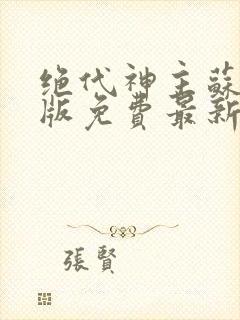 绝代神主蘇
版免費最新
張賢